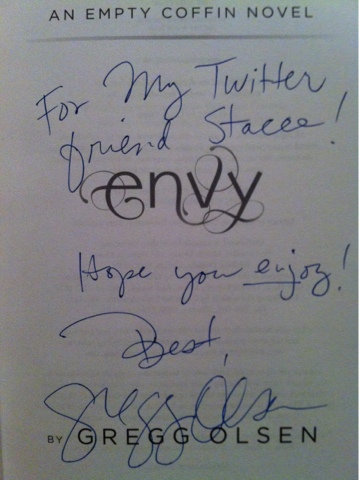 AN EMPTY COFFIN NOVEL
For My Twitter
friend Stacee!
envy
Hope you enjoy!
Best,
Gregg Olsen
BY GREGG OLSEN